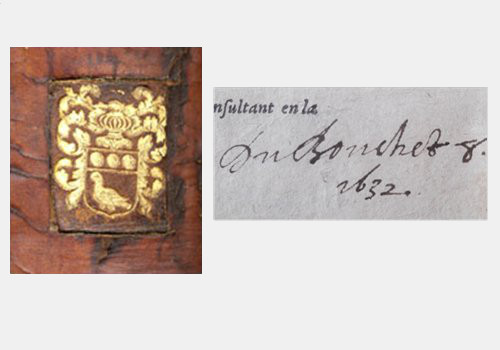 nsultant en la
Du Bouchet 8.
1632.